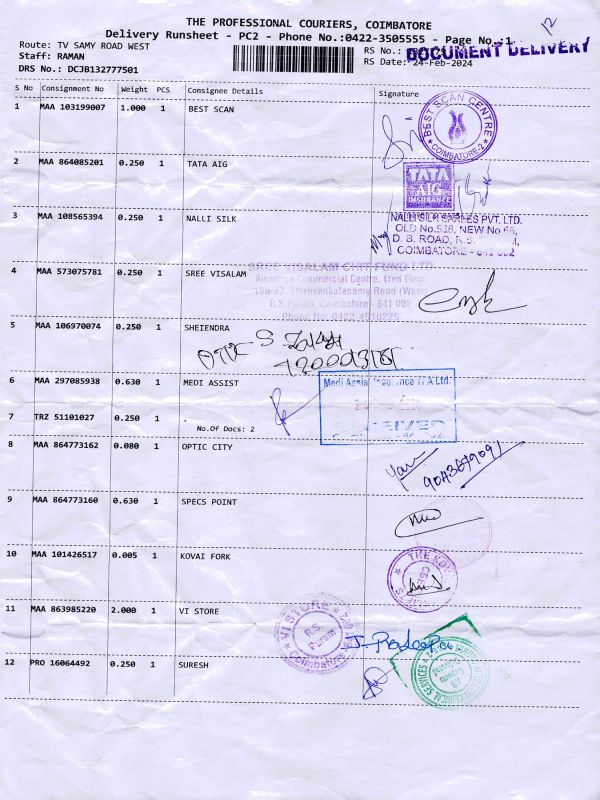 THE PROFESSIONAL COURIERS, COIMBATORE
Delivery Runsheet - PC2 - Phone No.:0422-3505555 - Page No.:1
12
Route: TV SAMY ROAD WEST
RS No.:
DOCUMENT DELIVERY
Staff: RAMAN
RS Date: 24-Feb-2024
DRS No.: DCJB132777501
S No Consignment No Weight PCS Consignee Details Signature
1 MAA 103199007 1.000 1 BEST SCAN
BEST SCAN CENTRE
COIMBATORE-2
2 MAA 864085201 0.250 1 TATA AIG
TATA
AIG
INSURANCE
3 MAA 108565394 0.250 1 NALLI SILK
NALLI SILK SAREES PVT. LTD.
OLD No.538, NEW No 66,
D. B. ROAD, R.S.
COIMBATORE - 641 002
4 MAA 573075781 0.250 1 SREE VISALAM
SREE VISALAM CHIT FUND LTD
Commercial Centre, Floor
Thiruvenkatasamy Road (West)
R.S Puram, Coimbatore - 641 002
Phone No: 0422-4510225
5 MAA 106970074 0.250 1 SHEIENDRA
6 MAA 297085938 0.630 1 MEDI ASSIST
Medi Assist Insurance TPA Ltd.
RECEIVED
7 TRZ 51101027 0.250 1
No.Of Docs: 2
8 MAA 864773162 0.080 1 OPTIC CITY
9 MAA 864773160 0.630 1 SPECS POINT
10 MAA 101426517 0.005 1 KOVAI FORK
THE
11 MAA 863985220 2.000 1 VI STORE
VI STORE
R.S.
Puram
Coimbatore
J. Pradeep
12 PRO 16064492 0.250 1 SURESH
SERVICES